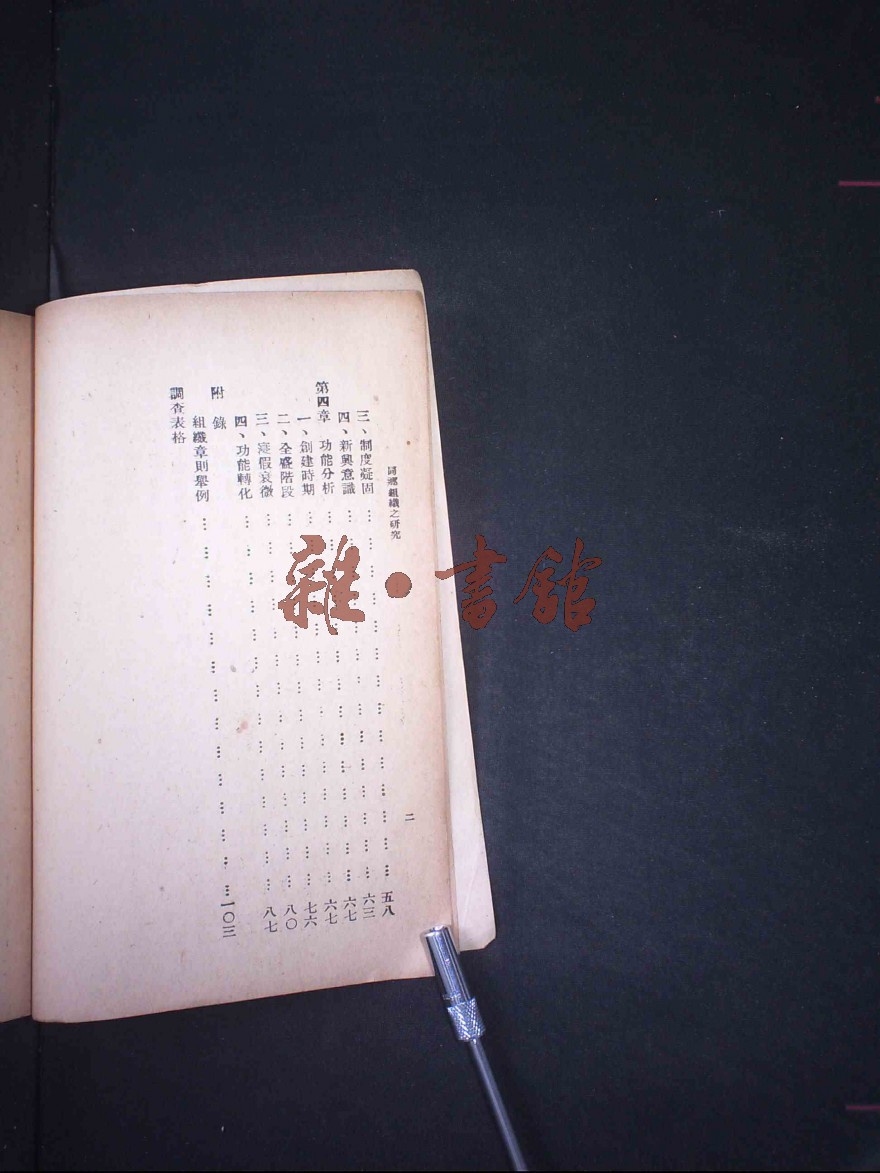 同鄉組織之研究 二
三、制度凝固 … … … … … … … … … … … … … … 五八
四、新興意識 … … … … … … … … … … … … … … 六三
第四章 功能分析 … … … … … … … … … … … … … … 六七
一、創建時期 … … … … … … … … … … … … … … 六七
二、全盛階段 … … … … … … … … … … … … … … 七六
三、寖假衰微 … … … … … … … … … … … … … … 八〇
四、功能轉化 … … … … … … … … … … … … … … 八七
附錄
組織章則舉例 … … … … … … … … … … … … … … 一〇三
調查表格
雜•書館